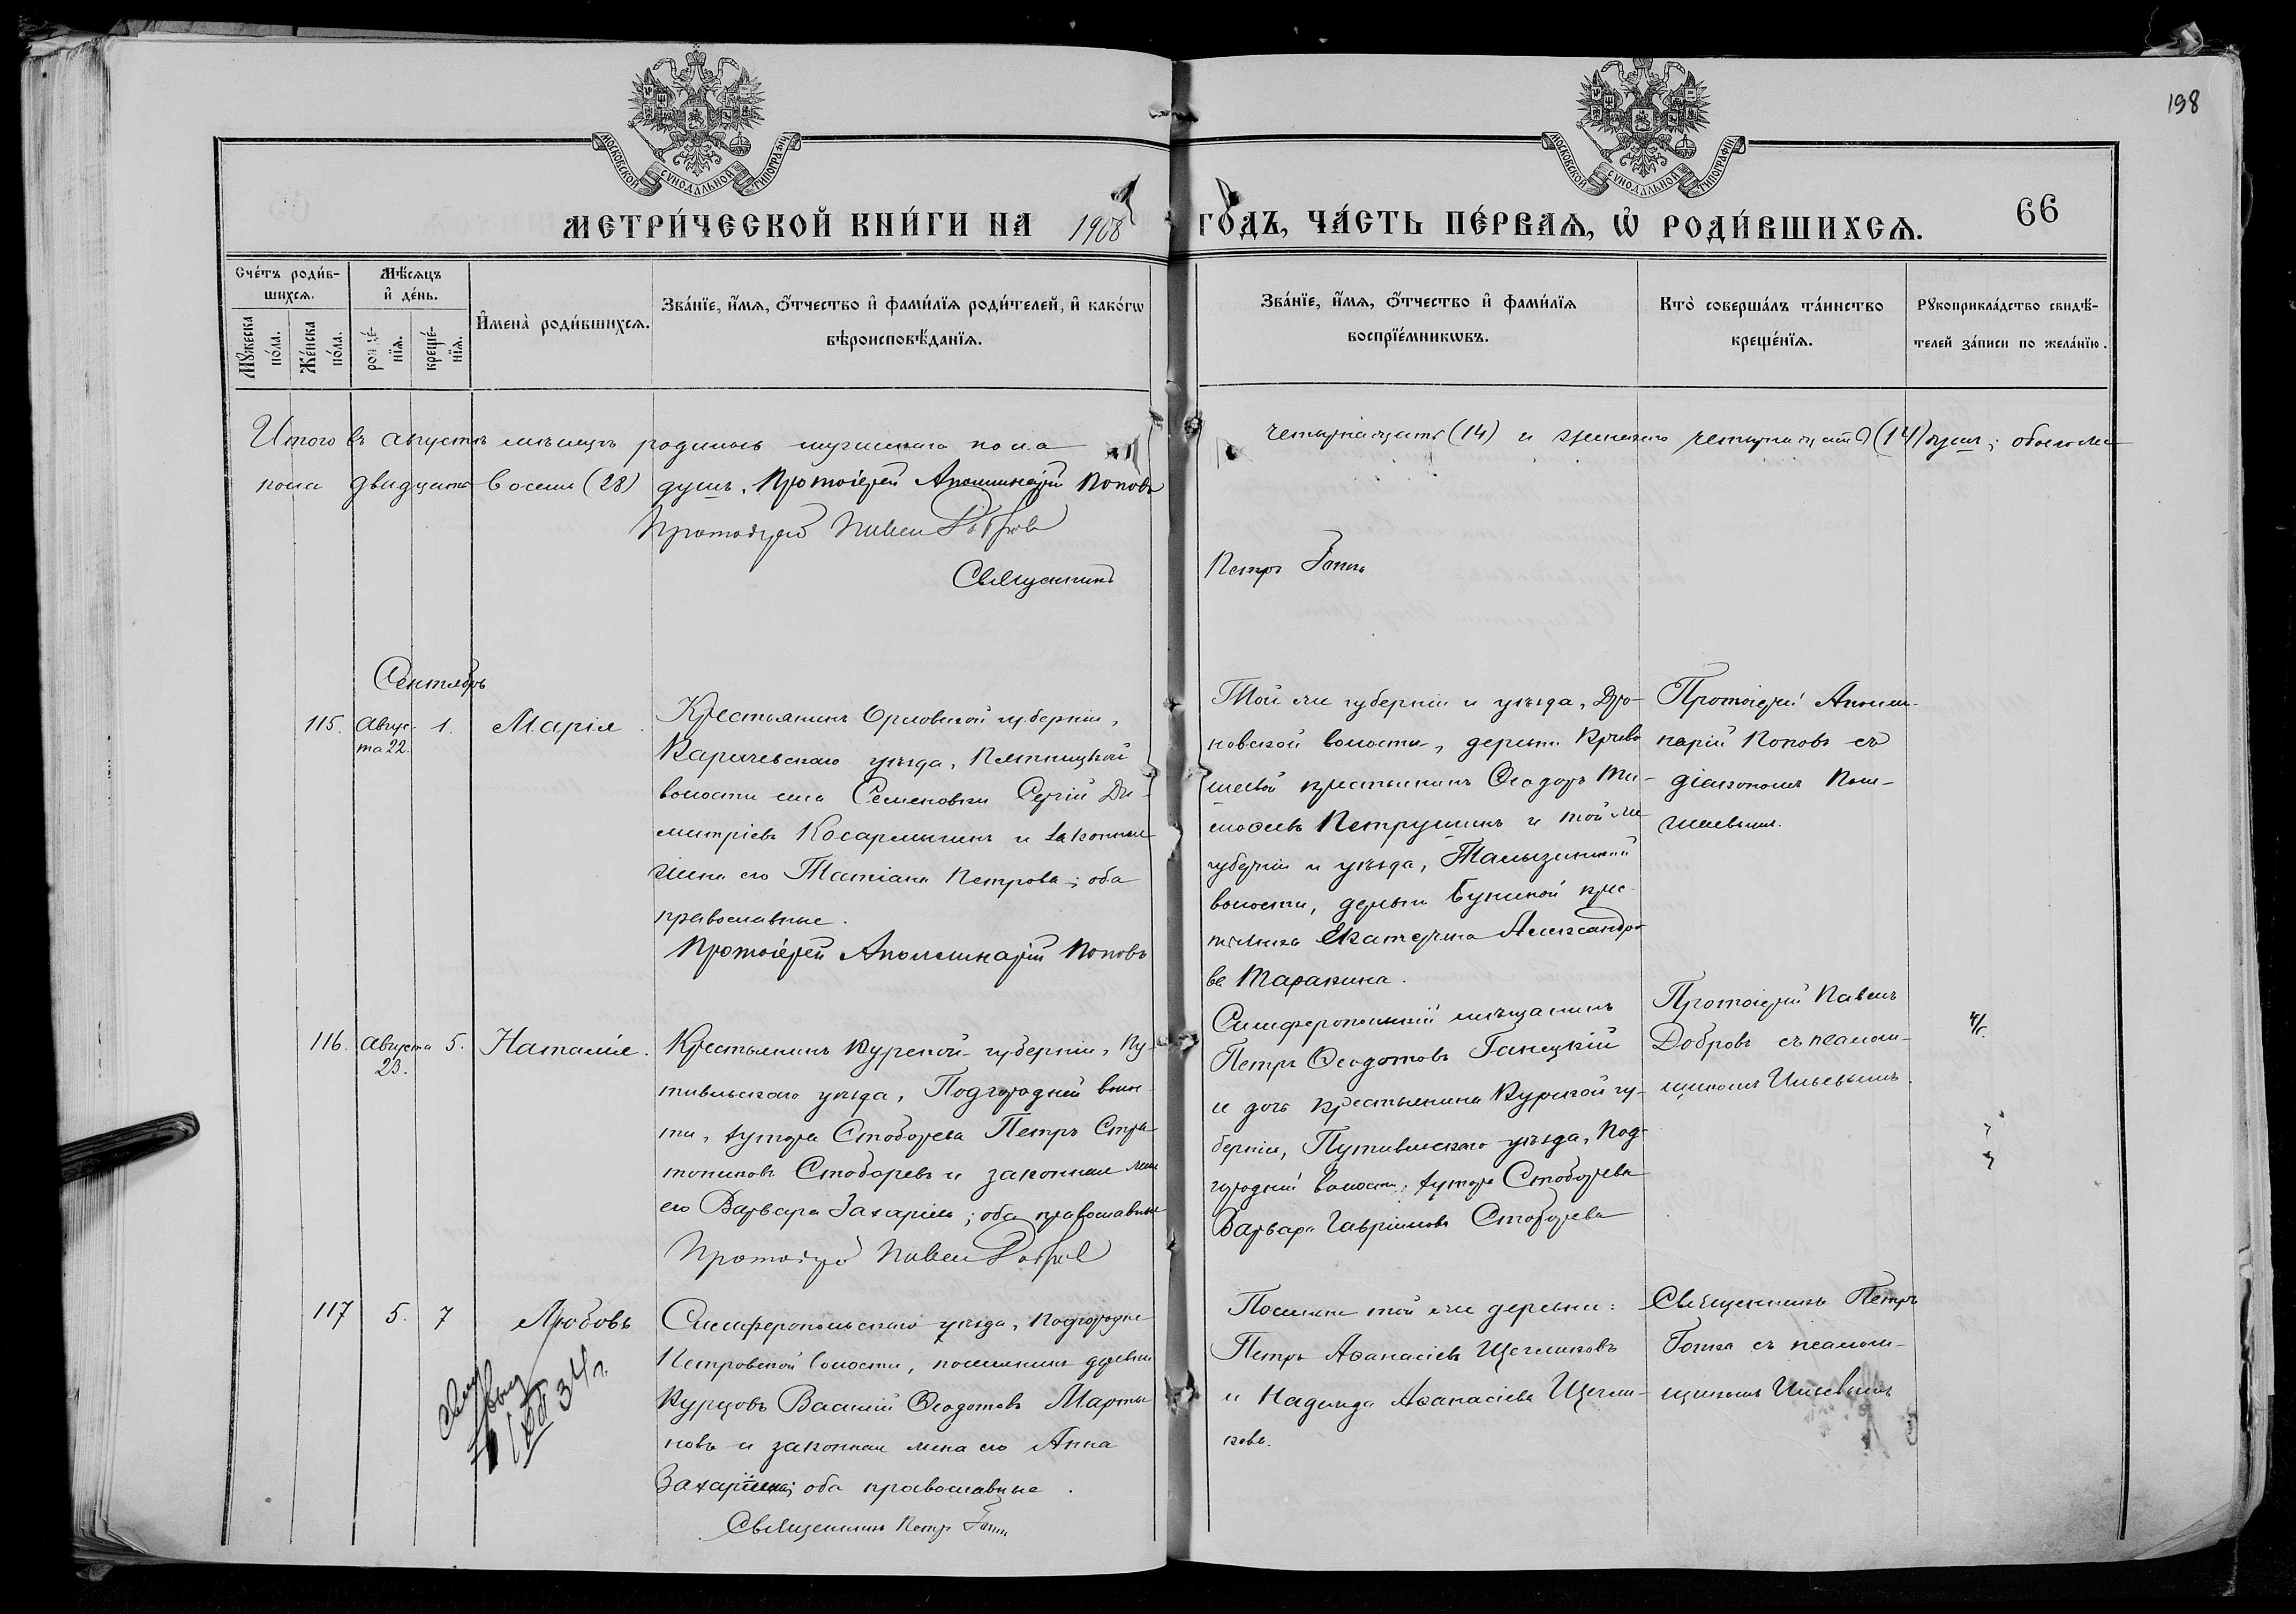 198
МОСКОВСКОЙ СѴНОДАЛЬНОЙ ТИПОГРАФІИ
МОСКОВСКОЙ СѴНОДАЛЬНОЙ ТИПОГРАФІИ
МЕТРИ́ЧЕСКОЙ КНИ́ГИ НА 1908 ГО́ДЪ, ЧА́СТЬ ПЕ́РВАѦ, Ѡ҆ РОДИ́ВШИХСѦ.
66
Сче́тъ роди́в-
шихсѧ.
Мꙋ́жеска
по́ла.
Же́нска
по́ла.
Мѣ́сѧцъ
и҆ де́нь.
рожде́-
нїѧ.
креще́-
нїѧ.
И҆мена̀ роди́вшихсѧ.
Зва́нїе, и҆́мѧ, ѻ҆́тчество и҆ фами́лїѧ роди́телей, и҆ како́гѡ
вѣроисповѣ́данїѧ.
Зва́нїе, и҆́мѧ, ѻ҆́тчество и҆ фами́лїѧ
воспрїе́мникѡвъ.
Кто̀ соверша́лъ та́инство
креще́нїѧ.
Рꙋкоприкла́дство свидѣ́-
телей за́писи по жела́нїю.
Итого въ августѣ мѣсяцѣ родилось мужескаго пола четырнадцать (14) и женскаго четырнадцать (14) душъ; обоего же
пола двадцать восемь (28) душъ. Протоіерей Аполлинарій Поповъ
Протоіерей Павелъ Добровъ
Священникъ Петръ
Сентябрь
115. Авгус-
та 22.
1.
Марія.
Крестьянинъ Орловской губерніи,
Карачевскаго уѣзда, Пятницкой
волости села Семеновки Сергій Ди-
митріевъ Косарлыгинъ и законная
жена его Татіана Петрова; оба
православные.
Протоіерей Аполлинарій Поповъ
Той же губерніи и уѣзда, Дро-
новской волости, деревни Криво
шеевой крестьянинъ Ѳеодоръ Ти-
моѳеевъ Петрушинъ и той же
губерніи и уѣзда,
волости, деревни Буниной крес-
тьянка Екатерина Александро
ва Таракина.
Протоіерей Аполли-
нарій Поповъ съ
діакономъ
116. Августа
23.
5.
Наталія.
Крестьянинъ Курской губерніи, Пу-
тивльскаго уѣзда, Подгородней волос-
ти, хутора Стоборева Петръ Стра
тониковъ Стоборевъ и законная жена
его Варвара Захаріева; оба православные
Протоіерей Павелъ Добровъ
Симферопольскій мѣщанинъ
Петръ Ѳеодотовъ Ганецкій
и дочь крестьянина Курской гу-
берніи, Путивльскаго уѣзда, Под-
городней волости, хутора Стоборева
Варвара Гавріилова Стоборева
Протоіерей Павелъ
Добровъ съ псалом-
щикомъ Ильевымъ.
117
5.
7
Любовь
XII 34 г.
Симферопольскаго уѣзда, Подгородне
Петровской волости, поселянинъ деревни
Курцовъ Василій Ѳеодотовъ Марты
новъ и законная жена его Анна
Захаріева; оба православные.
Священникъ Петръ
Поселяне той же деревни:
Петръ Аѳанасіевъ Щегликовъ
и Надежда Аѳанасіева Щегли-
кова.
Священникъ Петръ
съ псалом-
щикомъ Ильевымъ